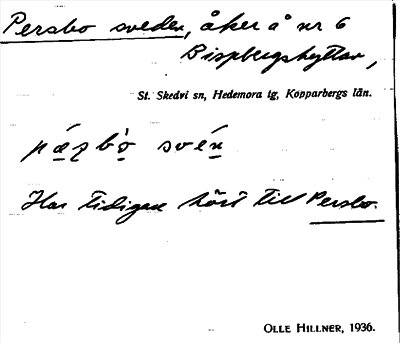 Persbo sveden, åker å nr 6
Bispbergshyttan,
St. Skedvi sn, Hedemora tg, Kopparbergs län.
Har tidigare hört till Persbo.
OLLE HILLNER, 1936.